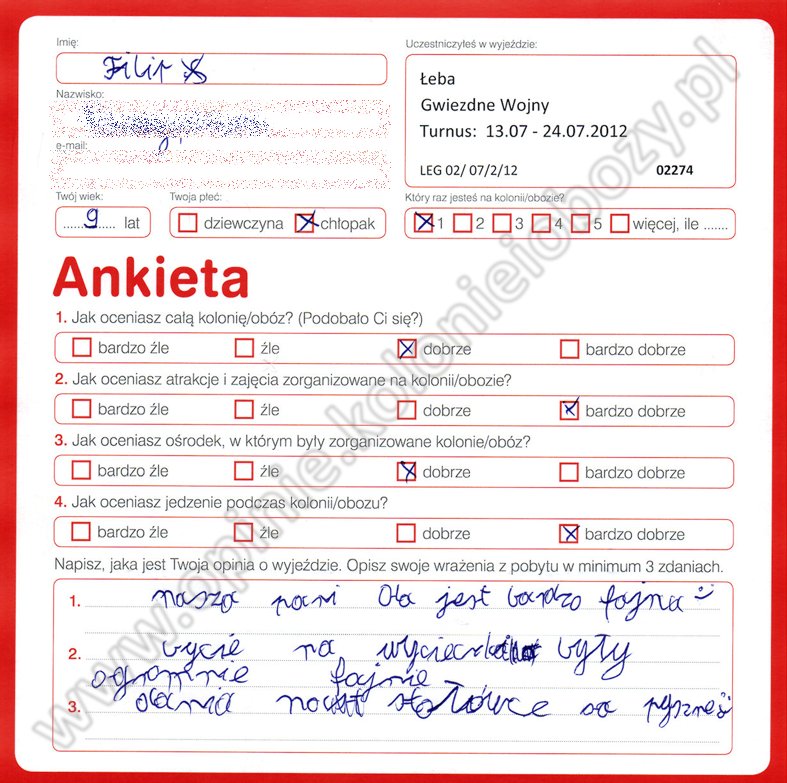 Imię:
Filip
Uczestniczyłeś w wyjeździe:
Łeba
Gwiezdne Wojny
Turnus: 13.07 - 24.07.2012
LEG 02/ 07/2/12 02274
Nazwisko:
e-mail:
Twój wiek:
9 lat
Twoja płeć:
dziewczyna chłopak
Który raz jesteś na kolonii/obozie?
1 2 3 4 5 więcej, ile .......
Ankieta
1. Jak oceniasz całą kolonię/obóz? (Podobało Ci się?)
bardzo źle źle dobrze bardzo dobrze
2. Jak oceniasz atrakcje i zajęcia zorganizowane na kolonii/obozie?
bardzo źle źle dobrze bardzo dobrze
3. Jak oceniasz ośrodek, w którym były zorganizowane kolonie/obóz?
bardzo źle źle dobrze bardzo dobrze
4. Jak oceniasz jedzenie podczas kolonii/obozu?
bardzo źle źle dobrze bardzo dobrze
Napisz, jaka jest Twoja opinia o wyjeździe. Opisz swoje wrażenia z pobytu w minimum 3 zdaniach.
1. nasza pani Ola jest bardzo fajna
2. na były
ogromnie fajnie
3. dania stołówce są pyszne
www.opinie.kolonieiobozy.pl